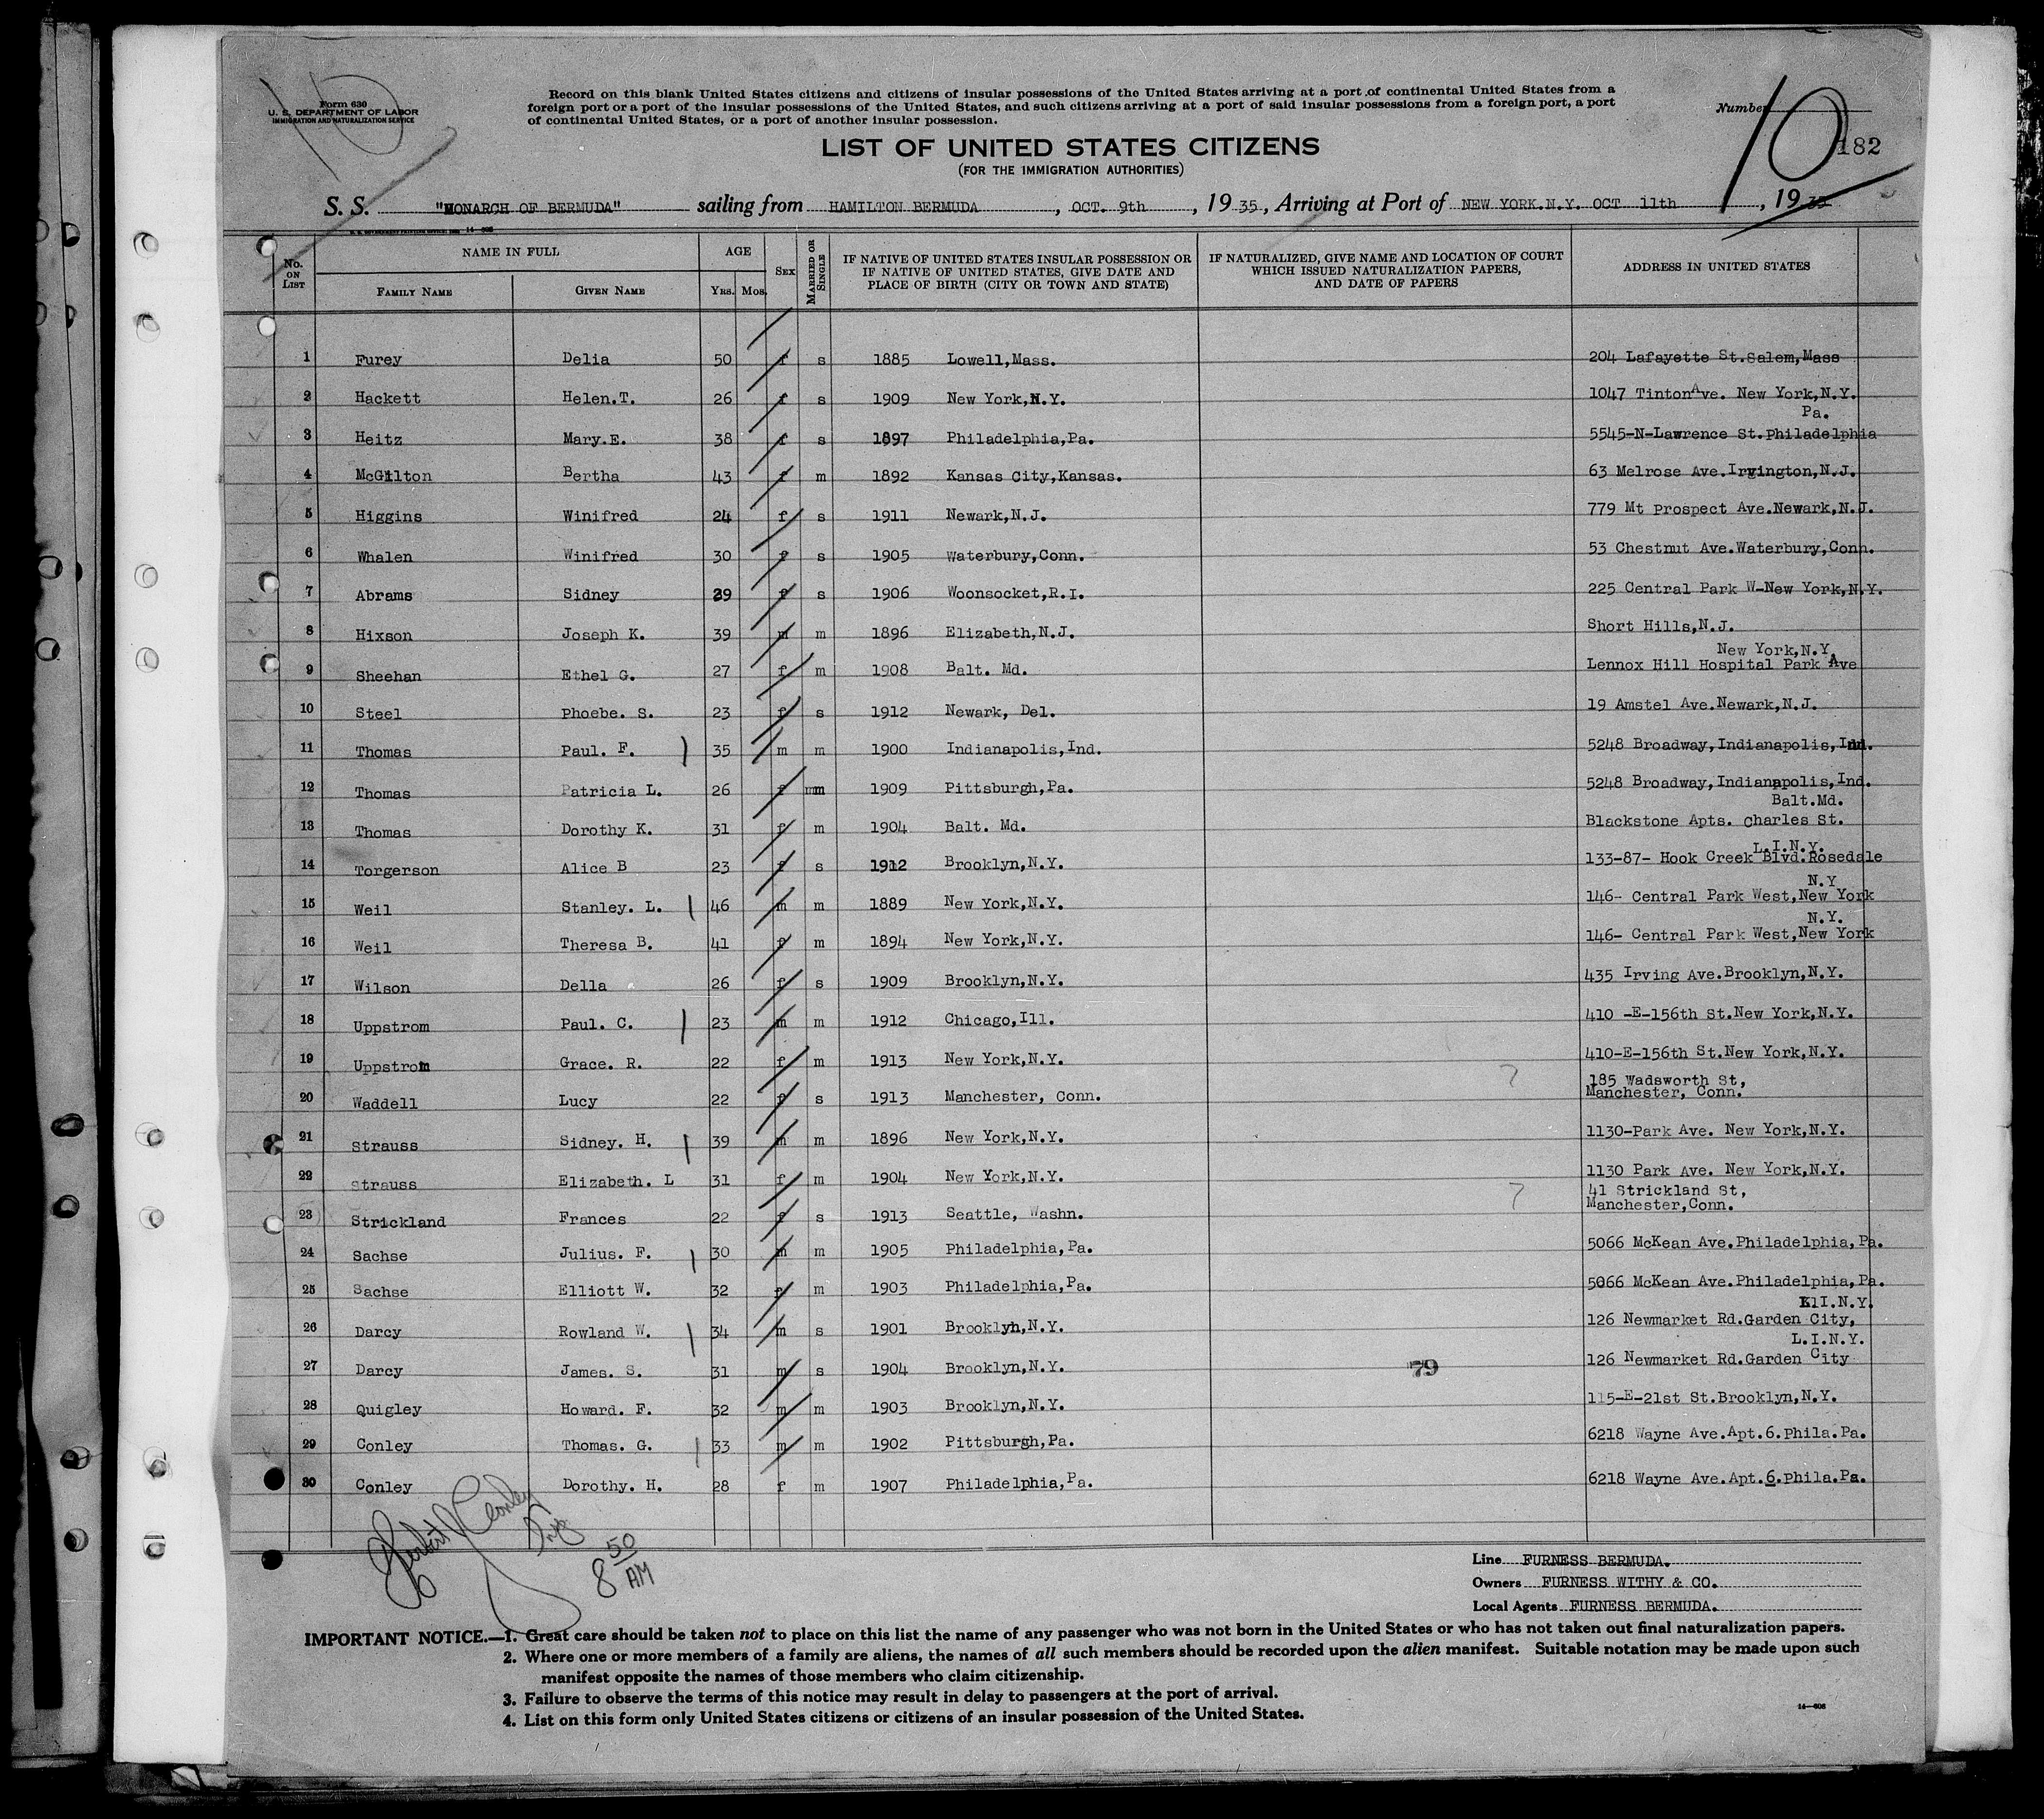 Form 630
U. S. DEPARTMENT OF LABOR
IMMIGRATION AND NATURALIZATION SERVICE
Record on this blank United States citizens and citizens of insular possessions of the United States arriving at a port of continental United States from a
foreign port or a port of the insular possessions of the United States, and such citizens arriving at a port of said insular possessions from a foreign port, a port
of continental United States, or a port of another insular possession.
Number
10
182
LIST OF UNITED STATES CITIZENS
(FOR THE IMMIGRATION AUTHORITIES)
S. S. "MONARCH OF BERMUDA" sailing from HAMILTON BERMUDA, OCT. 9th, 1935, Arriving at Port of NEW YORK.N.Y. OCT 11th, 1935
No. ON LIST NAME IN FULL FAMILY NAME GIVEN NAME AGE YRS. MOS. SEX MARRIED OR SINGLE
IF NATIVE OF UNITED STATES INSULAR POSSESSION OR IF NATIVE OF UNITED STATES, GIVE DATE AND PLACE OF BIRTH (CITY OR TOWN AND STATE)
IF NATURALIZED, GIVE NAME AND LOCATION OF COURT WHICH ISSUED NATURALIZATION PAPERS, AND DATE OF PAPERS
ADDRESS IN UNITED STATES
1 Furey Delia 50 f s 1885 Lowell,Mass. 204 Lafayette St.Salem,Mass
2 Hackett Helen.T. 26 f s 1909 New York,N.Y. 1047 Tinton Ave. New York,N.Y.
3 Heitz Mary.E. 38 f s 1897 Philadelphia,Pa. 5545-N-Lawrence St.Philadelphia Pa.
4 McGilton Bertha 43 f m 1892 Kansas City,Kansas. 63 Melrose Ave.Irvington,N.J.
5 Higgins Winifred 24 f s 1911 Newark,N.J. 779 Mt Prospect Ave.Newark,N.J.
6 Whalen Winifred 30 f s 1905 Waterbury,Conn. 53 Chestnut Ave.Waterbury,Conn.
7 Abrams Sidney 29 f s 1906 Woonsocket,R.I. 225 Central Park W-New York,N.Y.
8 Hixson Joseph K. 39 m m 1896 Elizabeth,N.J. Short Hills,N.J.
9 Sheehan Ethel G. 27 f m 1908 Balt. Md. Lennox Hill Hospital Park Ave New York,N.Y.
10 Steel Phoebe. S. 23 f s 1912 Newark, Del. 19 Amstel Ave.Newark,N.J.
11 Thomas Paul. F. 35 m m 1900 Indianapolis,Ind. 5248 Broadway,Indianapolis,Ind.
12 Thomas Patricia L. 26 f mm 1909 Pittsburgh,Pa. 5248 Broadway,Indianapolis,Ind.
13 Thomas Dorothy K. 31 f m 1904 Balt. Md. Blackstone Apts. Charles St. Balt.Md.
14 Torgerson Alice B 23 f s 1912 Brooklyn,N.Y. 133-87- Hook Creek Blvd.Rosedale L.I.N.Y.
15 Weil Stanley. L. 46 m m 1889 New York,N.Y. 146- Central Park West,New York N.Y
16 Weil Theresa B. 41 f m 1894 New York,N.Y. 146- Central Park West,New York N.Y.
17 Wilson Della 26 f s 1909 Brooklyn,N.Y. 435 Irving Ave.Brooklyn,N.Y.
18 Uppstrom Paul. C. 23 m m 1912 Chicago,Ill. 410 -E-156th St.New York,N.Y.
19 Uppstrom Grace. R. 22 f m 1913 New York,N.Y. 410-E-156th St.New York,N.Y.
20 Waddell Lucy 22 f s 1913 Manchester, Conn. 185 Wadsworth St, Manchester, Conn.
21 Strauss Sidney. H. 39 m m 1896 New York,N.Y. 1130-Park Ave. New York,N.Y.
22 Strauss Elizabeth. L 31 f m 1904 New York,N.Y. 1130 Park Ave. New York,N.Y.
23 Strickland Frances 22 f s 1913 Seattle, Washn. 41 Strickland St, Manchester,Conn.
24 Sachse Julius. F. 30 m m 1905 Philadelphia,Pa. 5066 McKean Ave.Philadelphia,Pa.
25 Sachse Elliott W. 32 f m 1903 Philadelphia,Pa. 5066 McKean Ave.Philadelphia,Pa.
26 Darcy Rowland W. 34 m s 1901 Brooklyn,N.Y. 126 Newmarket Rd.Garden City, L.I.N.Y.
27 Darcy James. S. 31 m s 1904 Brooklyn,N.Y. 79 126 Newmarket Rd.Garden City L.I.N.Y.
28 Quigley Howard. F. 32 m m 1903 Brooklyn,N.Y. 115-E-21st St.Brooklyn,N.Y.
29 Conley Thomas. G. 33 m m 1902 Pittsburgh,Pa. 6218 Wayne Ave.Apt.6.Phila.Pa.
30 Conley Dorothy. H. 28 f m 1907 Philadelphia,Pa. 6218 Wayne Ave.Apt.6.Phila.Pa.
8 50 AM
Line FURNESS BERMUDA.
Owners FURNESS WITHY & CO.
Local Agents FURNESS BERMUDA.
IMPORTANT NOTICE.—1. Great care should be taken not to place on this list the name of any passenger who was not born in the United States or who has not taken out final naturalization papers.
2. Where one or more members of a family are aliens, the names of all such members should be recorded upon the alien manifest. Suitable notation may be made upon such
manifest opposite the names of those members who claim citizenship.
3. Failure to observe the terms of this notice may result in delay to passengers at the port of arrival.
4. List on this form only United States citizens or citizens of an insular possession of the United States.